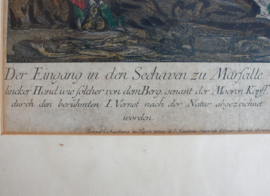 Der Eingang in den Seehaven zu Marseille
lincker Hand wie solcher von dem Berg genant der Mooren Kopff
durch den berühmten I. Vernet nach der Natur abgezeichnet
worden.